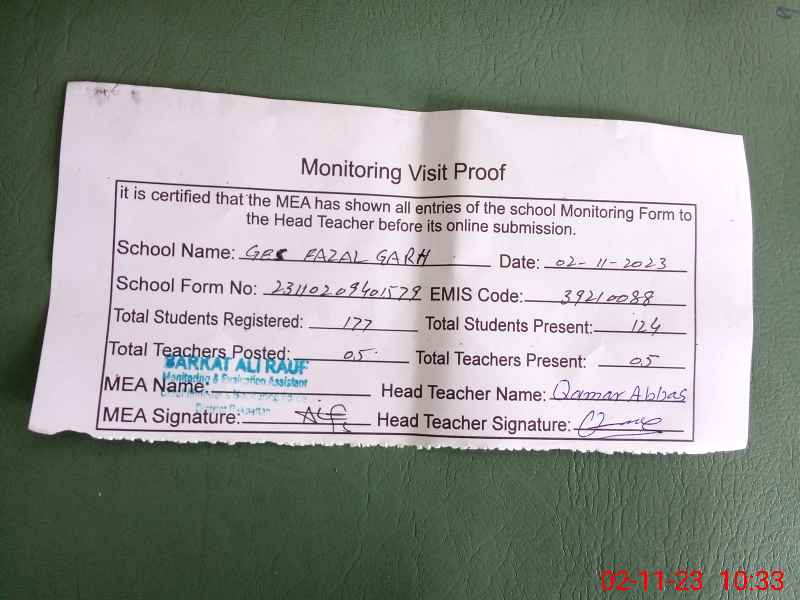 Monitoring Visit Proof
it is certified that the MEA has shown all entries of the school Monitoring Form to
the Head Teacher before its online submission.
School Name: GES FAZAL GARH Date: 02-11-2023
School Form No: 23110209401579 EMIS Code: 39210088
Total Students Registered: 177 Total Students Present: 124
Total Teachers Posted: 05 Total Teachers Present: 05
BARKAT ALI RAUF
Monitoring & Evaluation Assistant
MEA Name: Head Teacher Name: Qamar Abbas
District
MEA Signature: Head Teacher Signature:
02-11-23 10:33